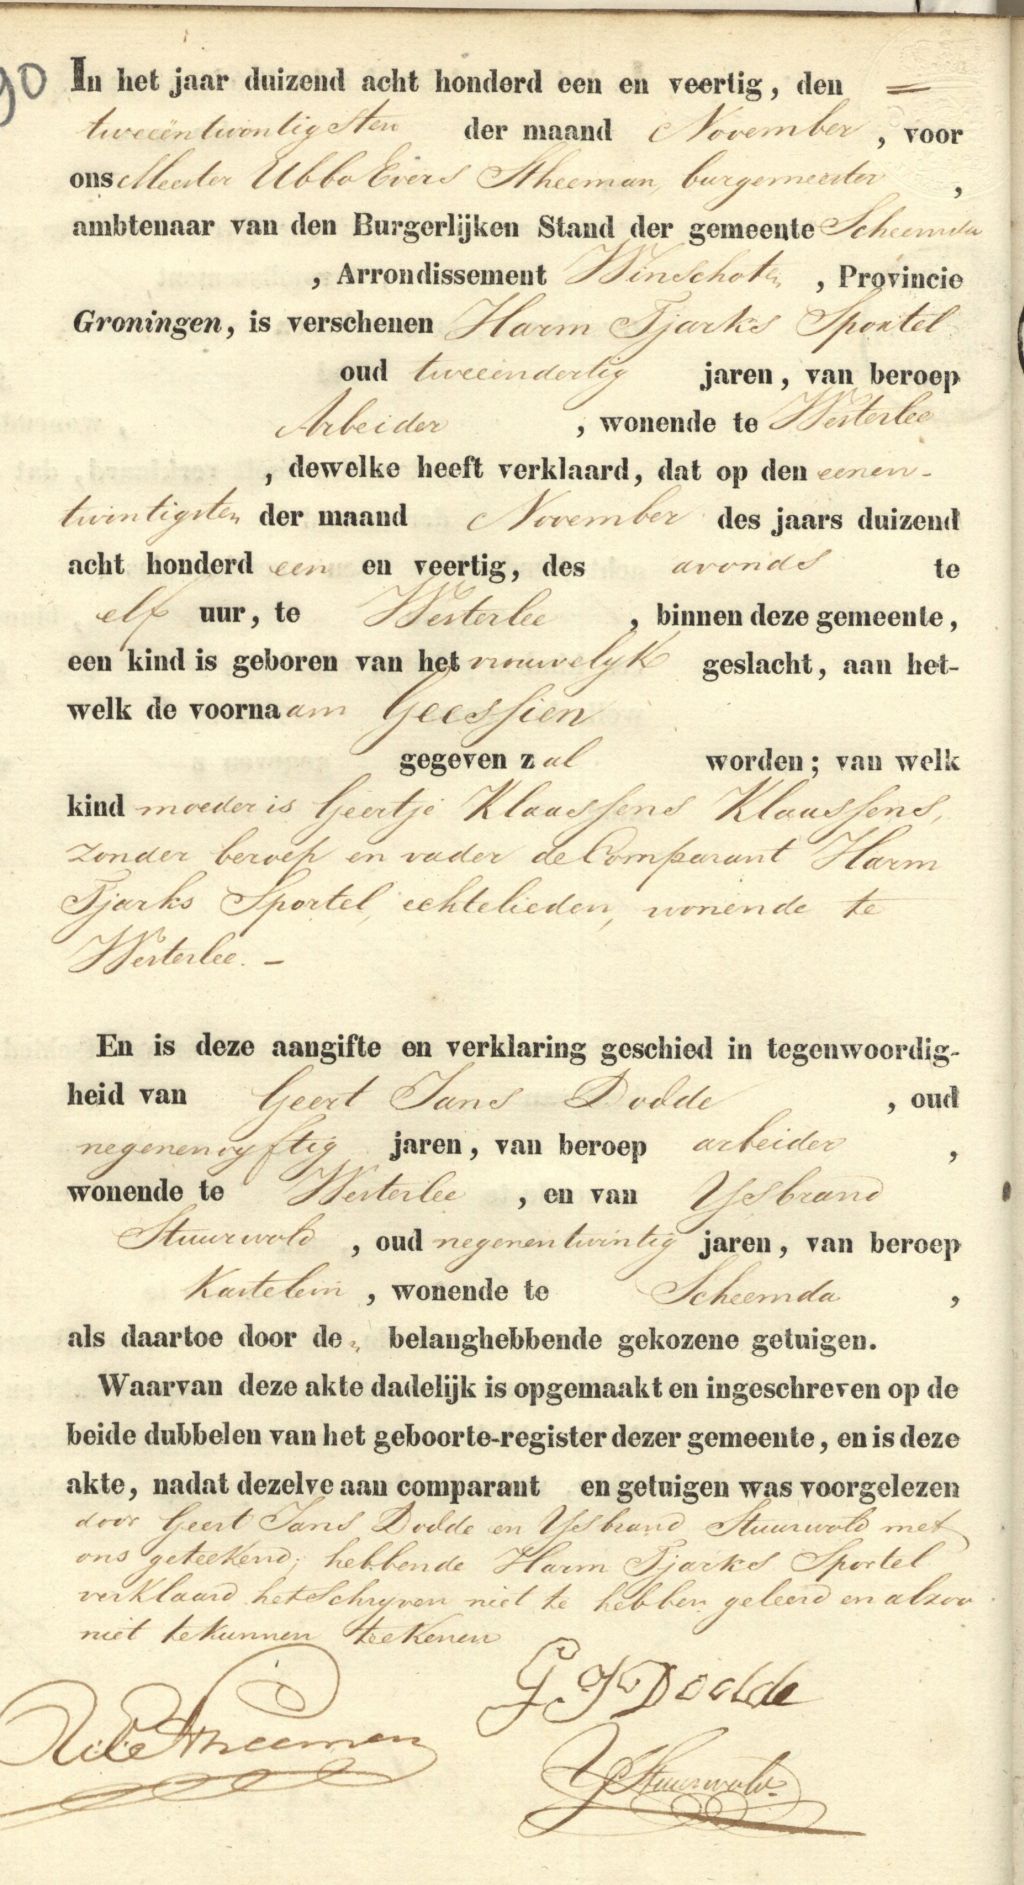 90 In het jaar duizend acht honderd een en veertig, den =
tweeëntwintigsten der maand November, voor
ons Meester Ubbo Evers Stheeman, burgemeester,
ambtenaar van den Burgerlijken Stand der gemeente Scheemda
, Arrondissement Winschoten, Provincie
Groningen, is verschenen Harm Tjarks Sportel
oud tweeendertig jaren, van beroep
Arbeider, wonende te Westerlee
, dewelke heeft verklaard, dat op den eenen-
twintigsten der maand November des jaars duizend
acht honderd een en veertig, des avonds te
elf uur, te Westerlee, binnen deze gemeente,
een kind is geboren van het vrouwelyk geslacht, aan het-
welk de voornaam Geessien
gegeven zal worden; van welk
kind moeder is Geertje Klaassens Klaassens,
zonder beroep en vader de Comparant Harm
Tjarks Sportel, echtelieden, wonende te
Westerlee. –
En is deze aangifte en verklaring geschied in tegenwoordig-
heid van Geert Jans Dodde, oud
negenenvyftig jaren, van beroep arbeider,
wonende te Westerlee, en van Ysbrand
Stuurwold, oud negenentwintig jaren, van beroep
Kastelein, wonende te Scheemda,
als daartoe door de belanghebbende gekozene getuigen.
Waarvan deze akte dadelijk is opgemaakt en ingeschreven op de
beide dubbelen van het geboorte-register dezer gemeente, en is deze
akte, nadat dezelve aan comparant en getuigen was voorgelezen
door Geert Jans Dodde en Ysbrand Stuurwold met
ons geteekend; hebbende Harm Tjarks Sportel
verklaard het schryven niet te hebben geleerd en alzoo
niet te kunnen teekenen
G J Dodde
U E Stheeman
Y Stuurwold